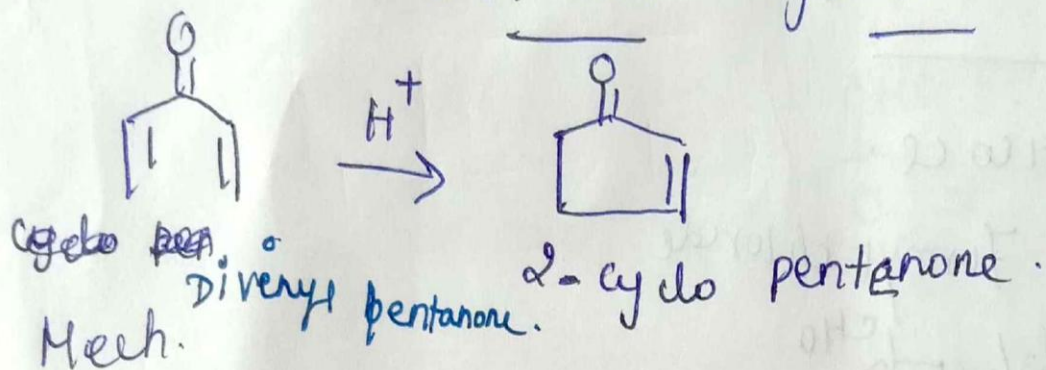 O
H+
O
Divenyl pentanone.
2-cyclo pentenone.
Mech.